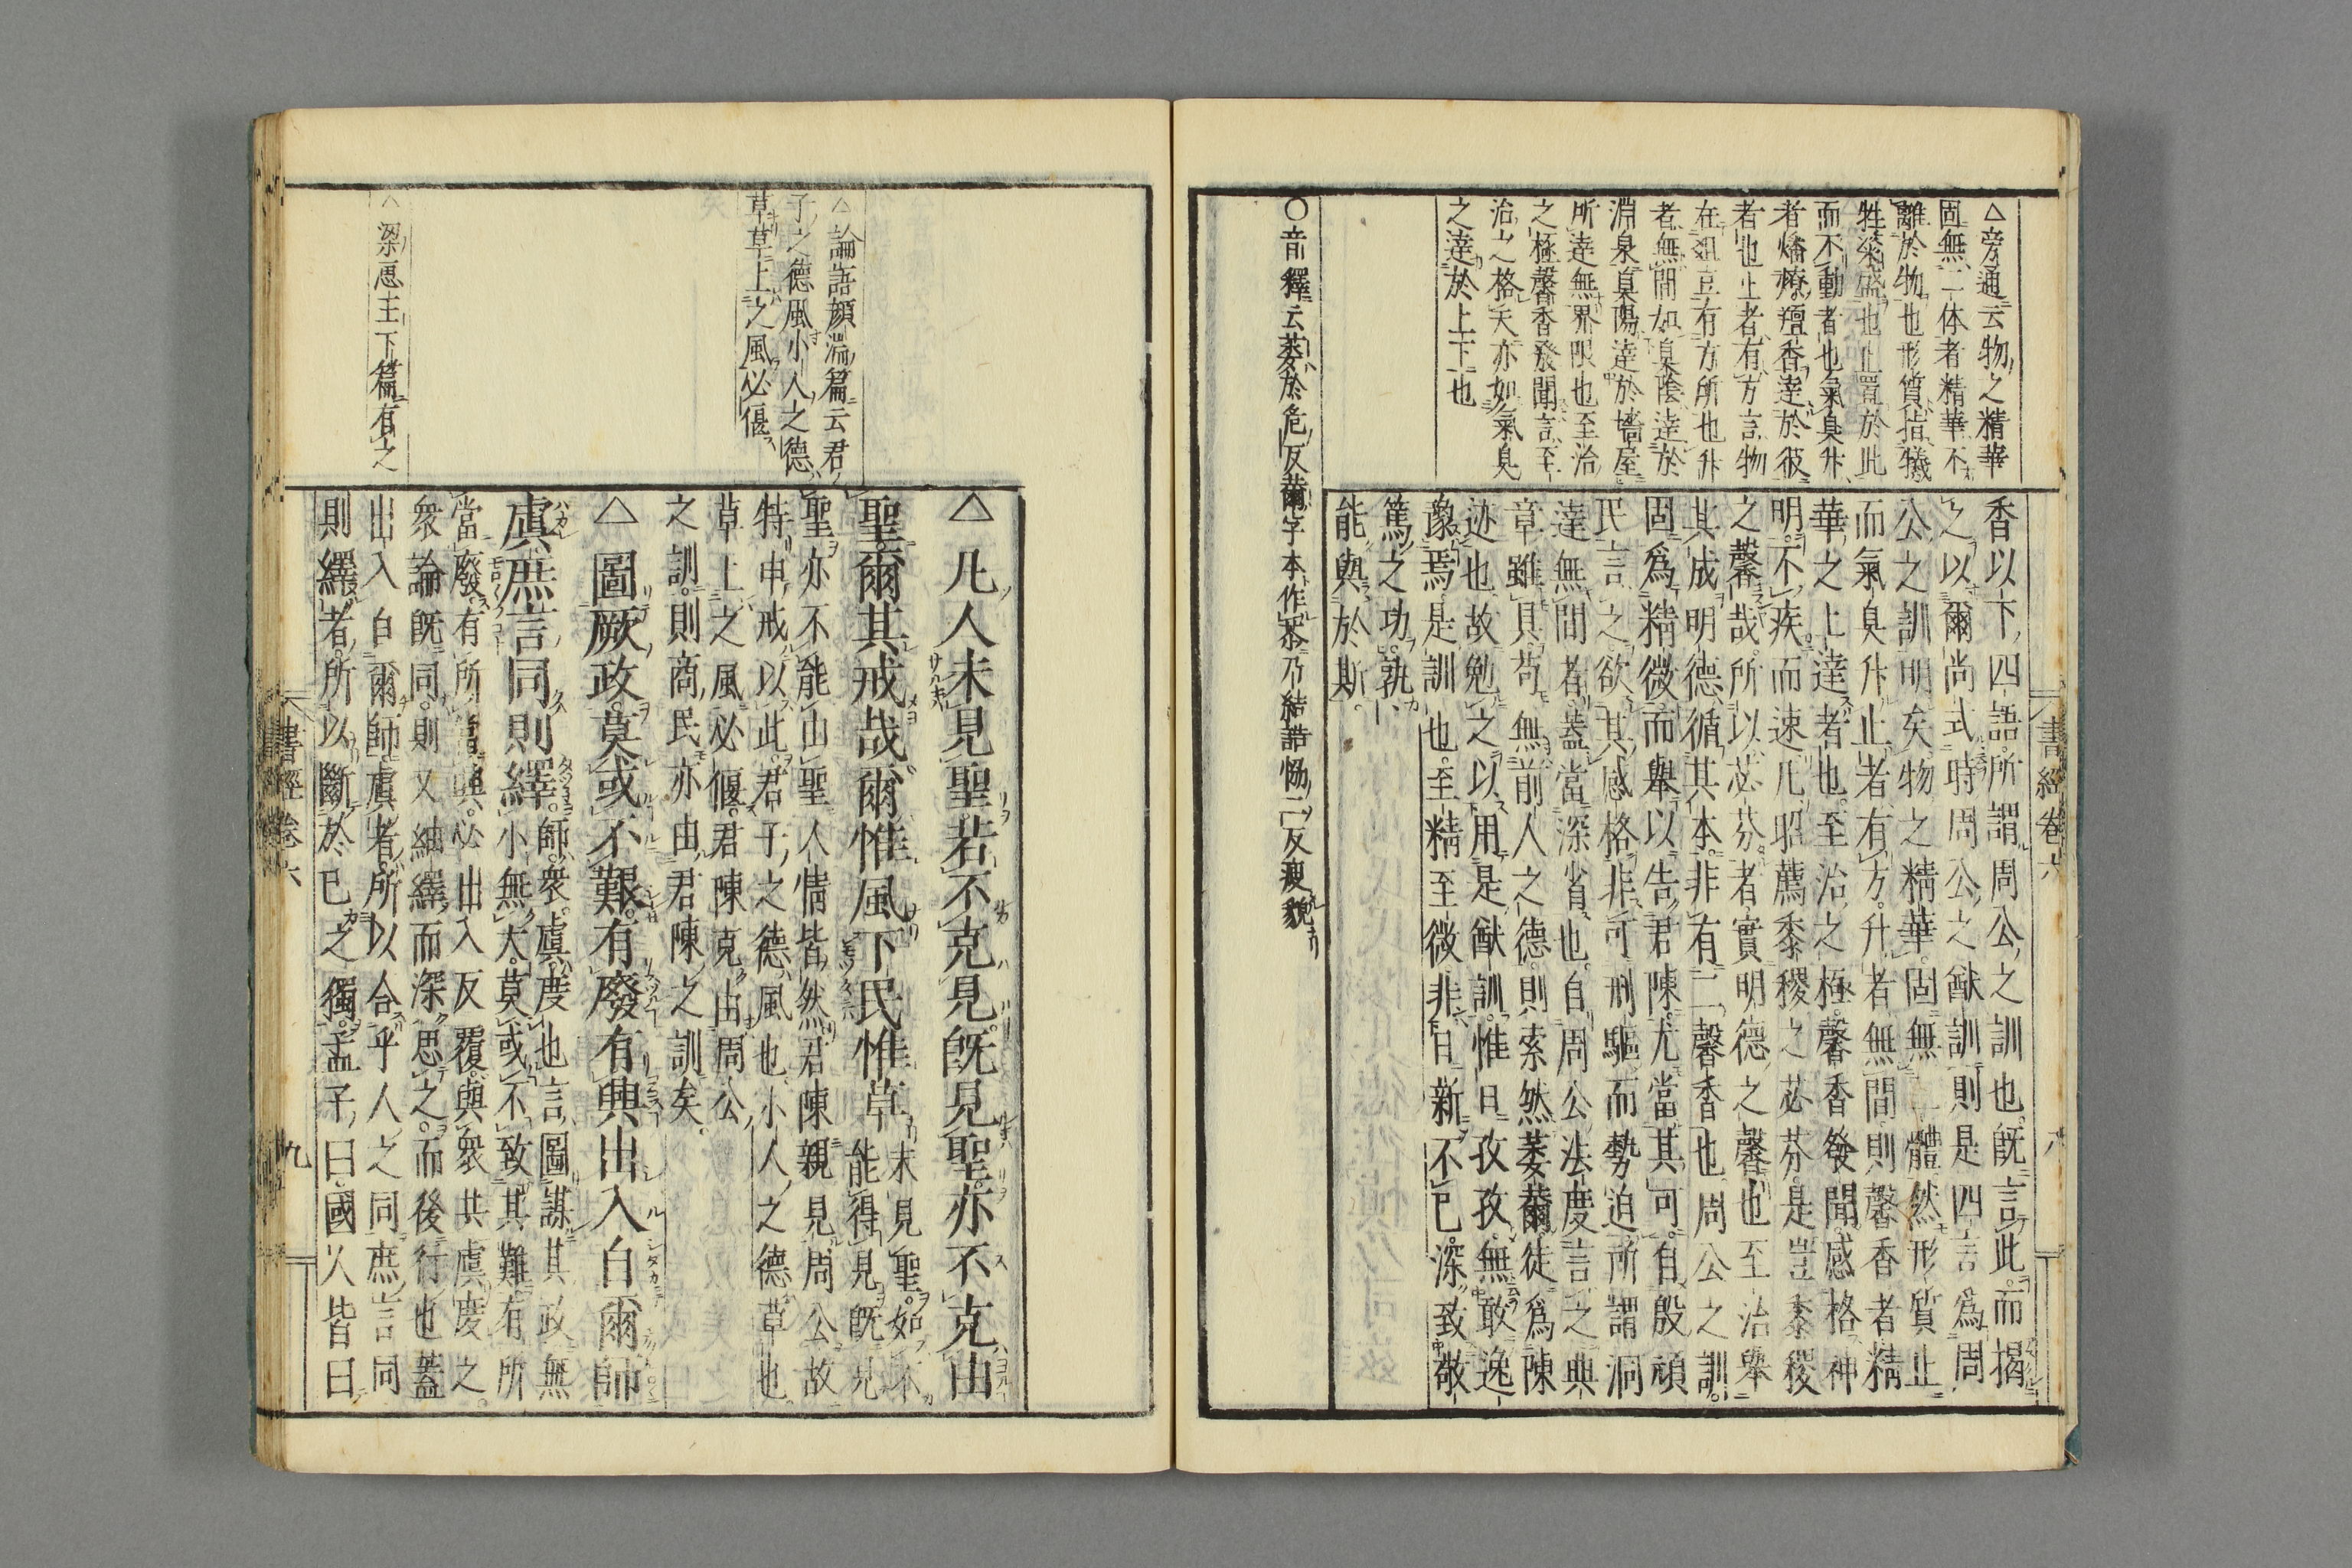 書經卷六
八
△旁通云物之精華
固無二体者精華不
離於物也形質指犧
牲粢盛也止置於此
而不動者也氣臭升
者燔燎羶香達於彼
者也止者有方言物
在俎豆有方所也升
者無間如臭陰達於
淵泉臭陽達於墻屋
所達無界限也至治
之極馨香發聞言至
治之格天亦如氣臭
之達於上下也
○音釋云萎於危反薾字本作苶乃結諸惱二反疲貌
香以下四語所謂周公之訓也旣言此而揭
之以爾尚式時周公之猷訓則是四言爲周
公之訓明矣物之精華固無二體然形質止
而氣臭升止者有方升者無間則馨香者精
華之上達者也至治之極馨香發聞感格神
明不疾而速凡昭薦黍稷之苾芬是豈黍稷
之馨哉所以苾芬者實明德之馨也至治舉
其成明德循其本非有二馨香也周公之訓
固爲精微而舉以告君陳尤當其可自殷頑
民言之欲其感格非可刑驅而勢迫所謂洞
達無間者蓋當深省也自周公法度言之典
章雖具苟無前人之德則索然萎薾徒爲陳
迹也故勉之以用是猷訓惟日孜孜無敢逸
豫焉是訓也至精至微非日新不已深致敬
篤之功孰
能與於斯
△論語顔淵篇云君
子之德風小人之德
草草上之風必偃
△深思主下篇有之
△凡人未見聖若不克見旣見聖亦不克由
聖爾其戒哉爾惟風下民惟草
未見聖如不
能得見旣見
聖亦不能由聖人情皆然君陳親見周公故
特申戒以此君子之德風也小人之德草也
草上之風必偃君陳克由周公
之訓則商民亦由君陳之訓矣
△圖厥政莫或不艱有廢有興出入自爾師
虞庶言同則繹
師衆虞度也言圖謀其政無
小無大莫或不致其難有所
當廢有所當興必出入反覆與衆共虞度之
衆論旣同則又紬繹而深思之而後行也蓋
出入自爾師虞者所以合乎人之同庶言同
則繹者所以斷於己之獨孟子曰國人皆曰
書經卷六
九